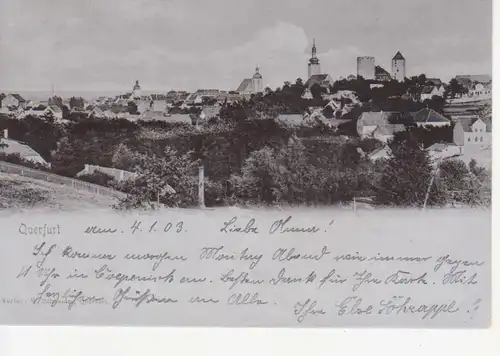 Querfurt den. 4.1.03. Liebe Anna!
Ich komme morgen Montag Abend wie immer gegen
11 Uhr in Cöpenick an. Besten Dank für Ihre Karte. Mit
herzlichen Grüssen an Alle. Ihre Else